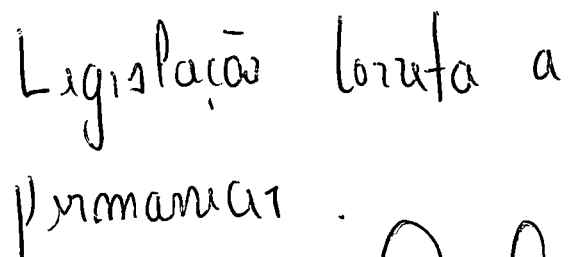 Legislação correta a
permanecer.